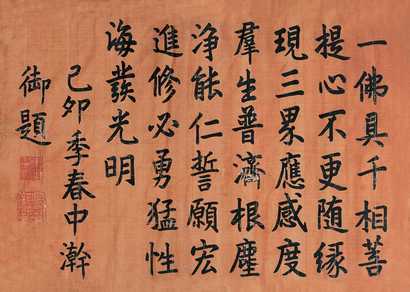 一佛具千相菩
提心不更随緣
現三界應感度
羣生普濟根塵
净能仁誓願宏
進修必勇猛性
海發光明
己卯季春中澣
御題